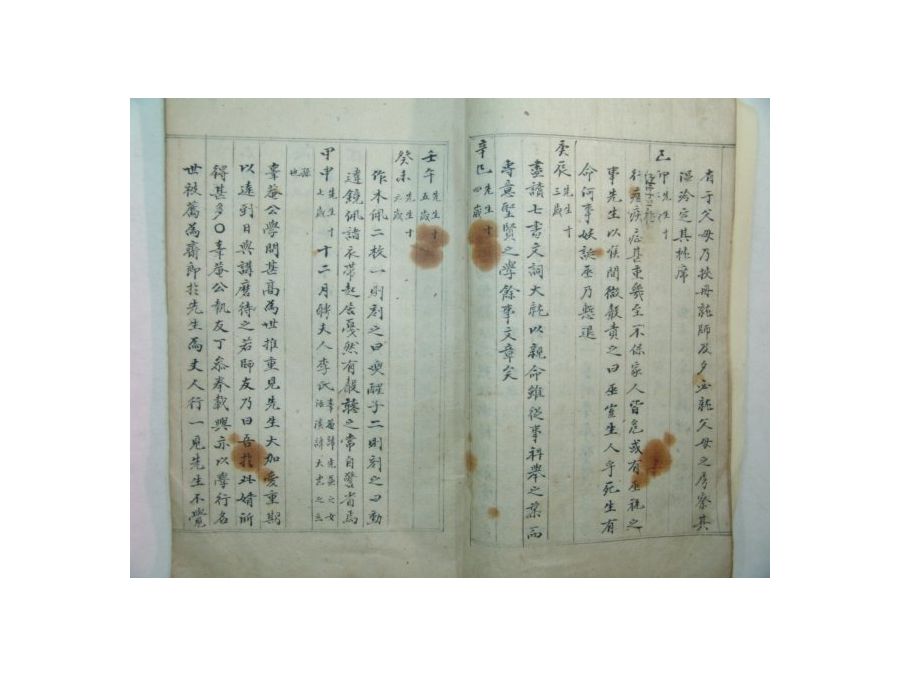 省于父母乃扶母就師及夕必就父母之房察其
溫冷定其枕席
己卯先生十二歲
行癘疾症甚重幾至不保家人皆危或有巫祝之
事先生以候間微聲責之曰巫豈生人乎死生有
命何事妖誕巫乃慙退
庚辰先生十三歲
盡讀七書文詞大就以親命雖從事科舉之業而
專意聖賢之學餘事文章矣
辛巳先生十四歲
壬午先生十五歲
癸未先生十六歲
作木佩二枚一則刻之曰喚醒子二則刻之曰動
違鏡佩諸衣帶起居戛然有聲聽之常自警省焉
甲申先生十七歲十二月聘夫人李氏
孫也
公學問甚高為世推重見先生大加愛重期
以遠到日與講磨待之若師友乃曰吾於此婿所
得甚多○公執友丁奉載興亦以學行名
世被薦為齋郎於先生為丈人行一見先生不覺